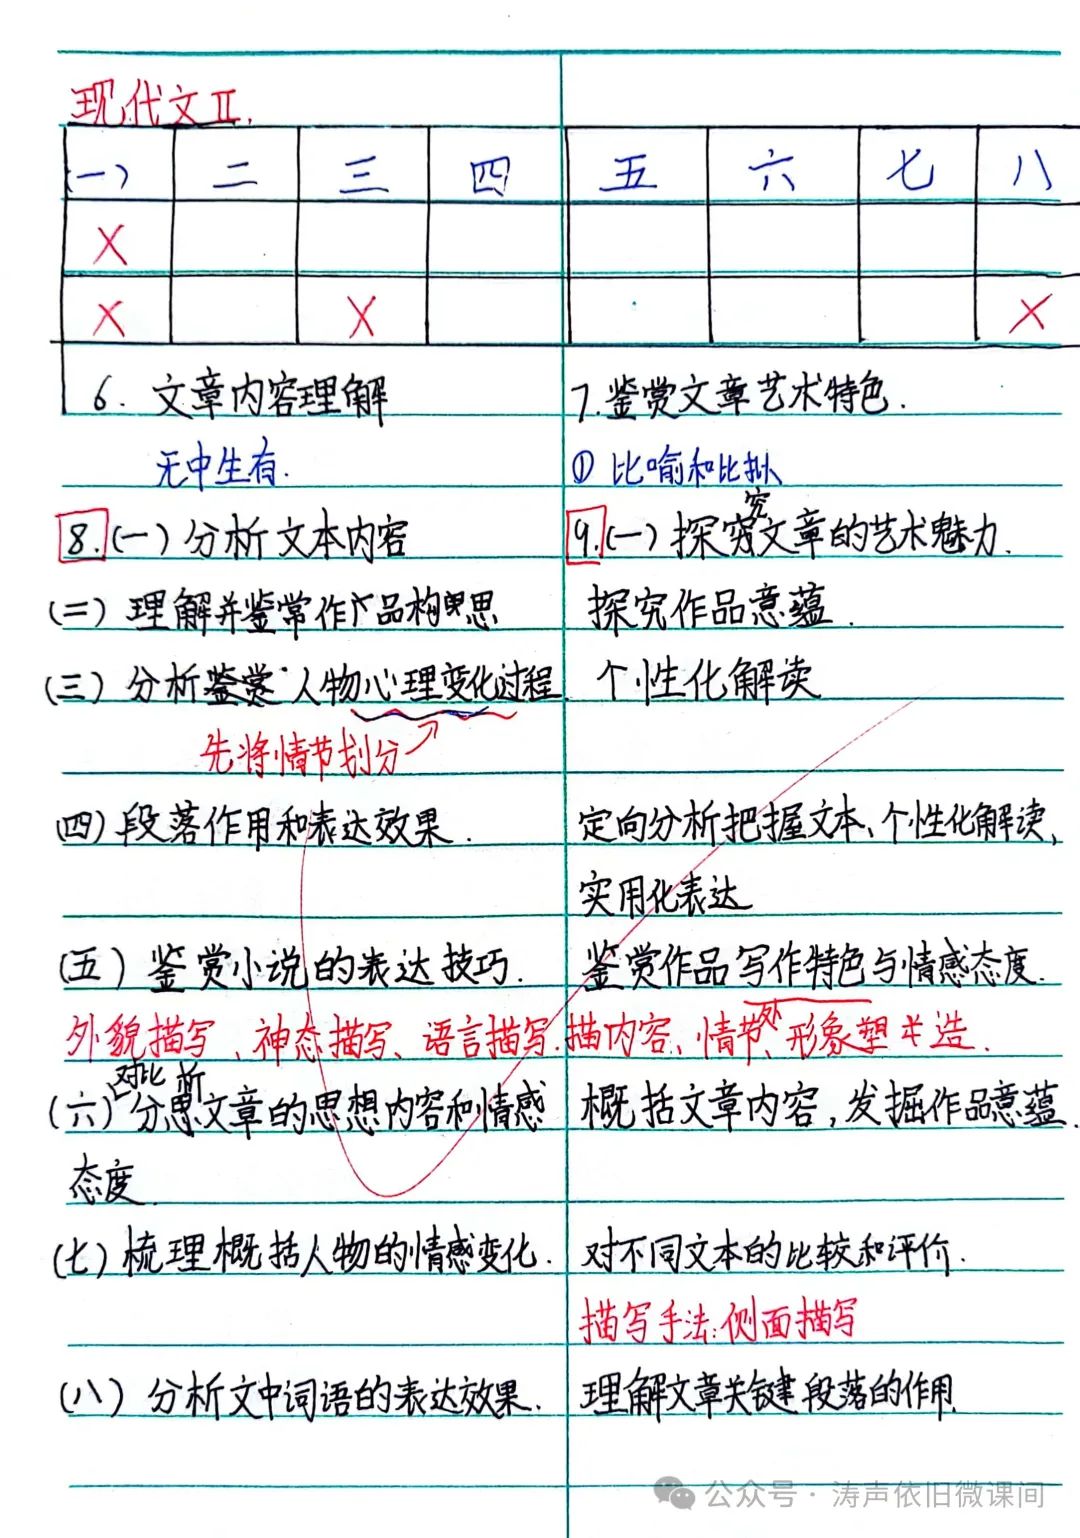 现代文Ⅱ.
(一) 二 三 四 五 六 七 八
X
X X X
6. 文章内容理解 7. 鉴赏文章艺术特色.
无中生有. ① 比喻和比拟
究
8. (一) 分析文本内容 9. (一) 探穷文章的艺术魅力.
(二) 理解并鉴常作产品构思 探究作品意蕴.
(三) 分析鉴赏人物心理变化过程. 个性化解读
先将情节划分
(四) 段落作用和表达效果. 定向分析把握文本、个性化解读,
实用化表达
(五) 鉴赏小说的表达技巧. 鉴赏作品写作特色与情感态度.
外貌描写、神态描写、语言描写. 描内容、情节、形象塑造.
对比 析
(六) 分思文章的思想内容和情感 概括文章内容,发掘作品意蕴.
态度.
(七) 梳理概括人物的情感变化. 对不同文本的比较和评价.
描写手法:侧面描写
(八) 分析文中词语的表达效果. 理解文章关键段落的作用.
公众号·涛声依旧微课间